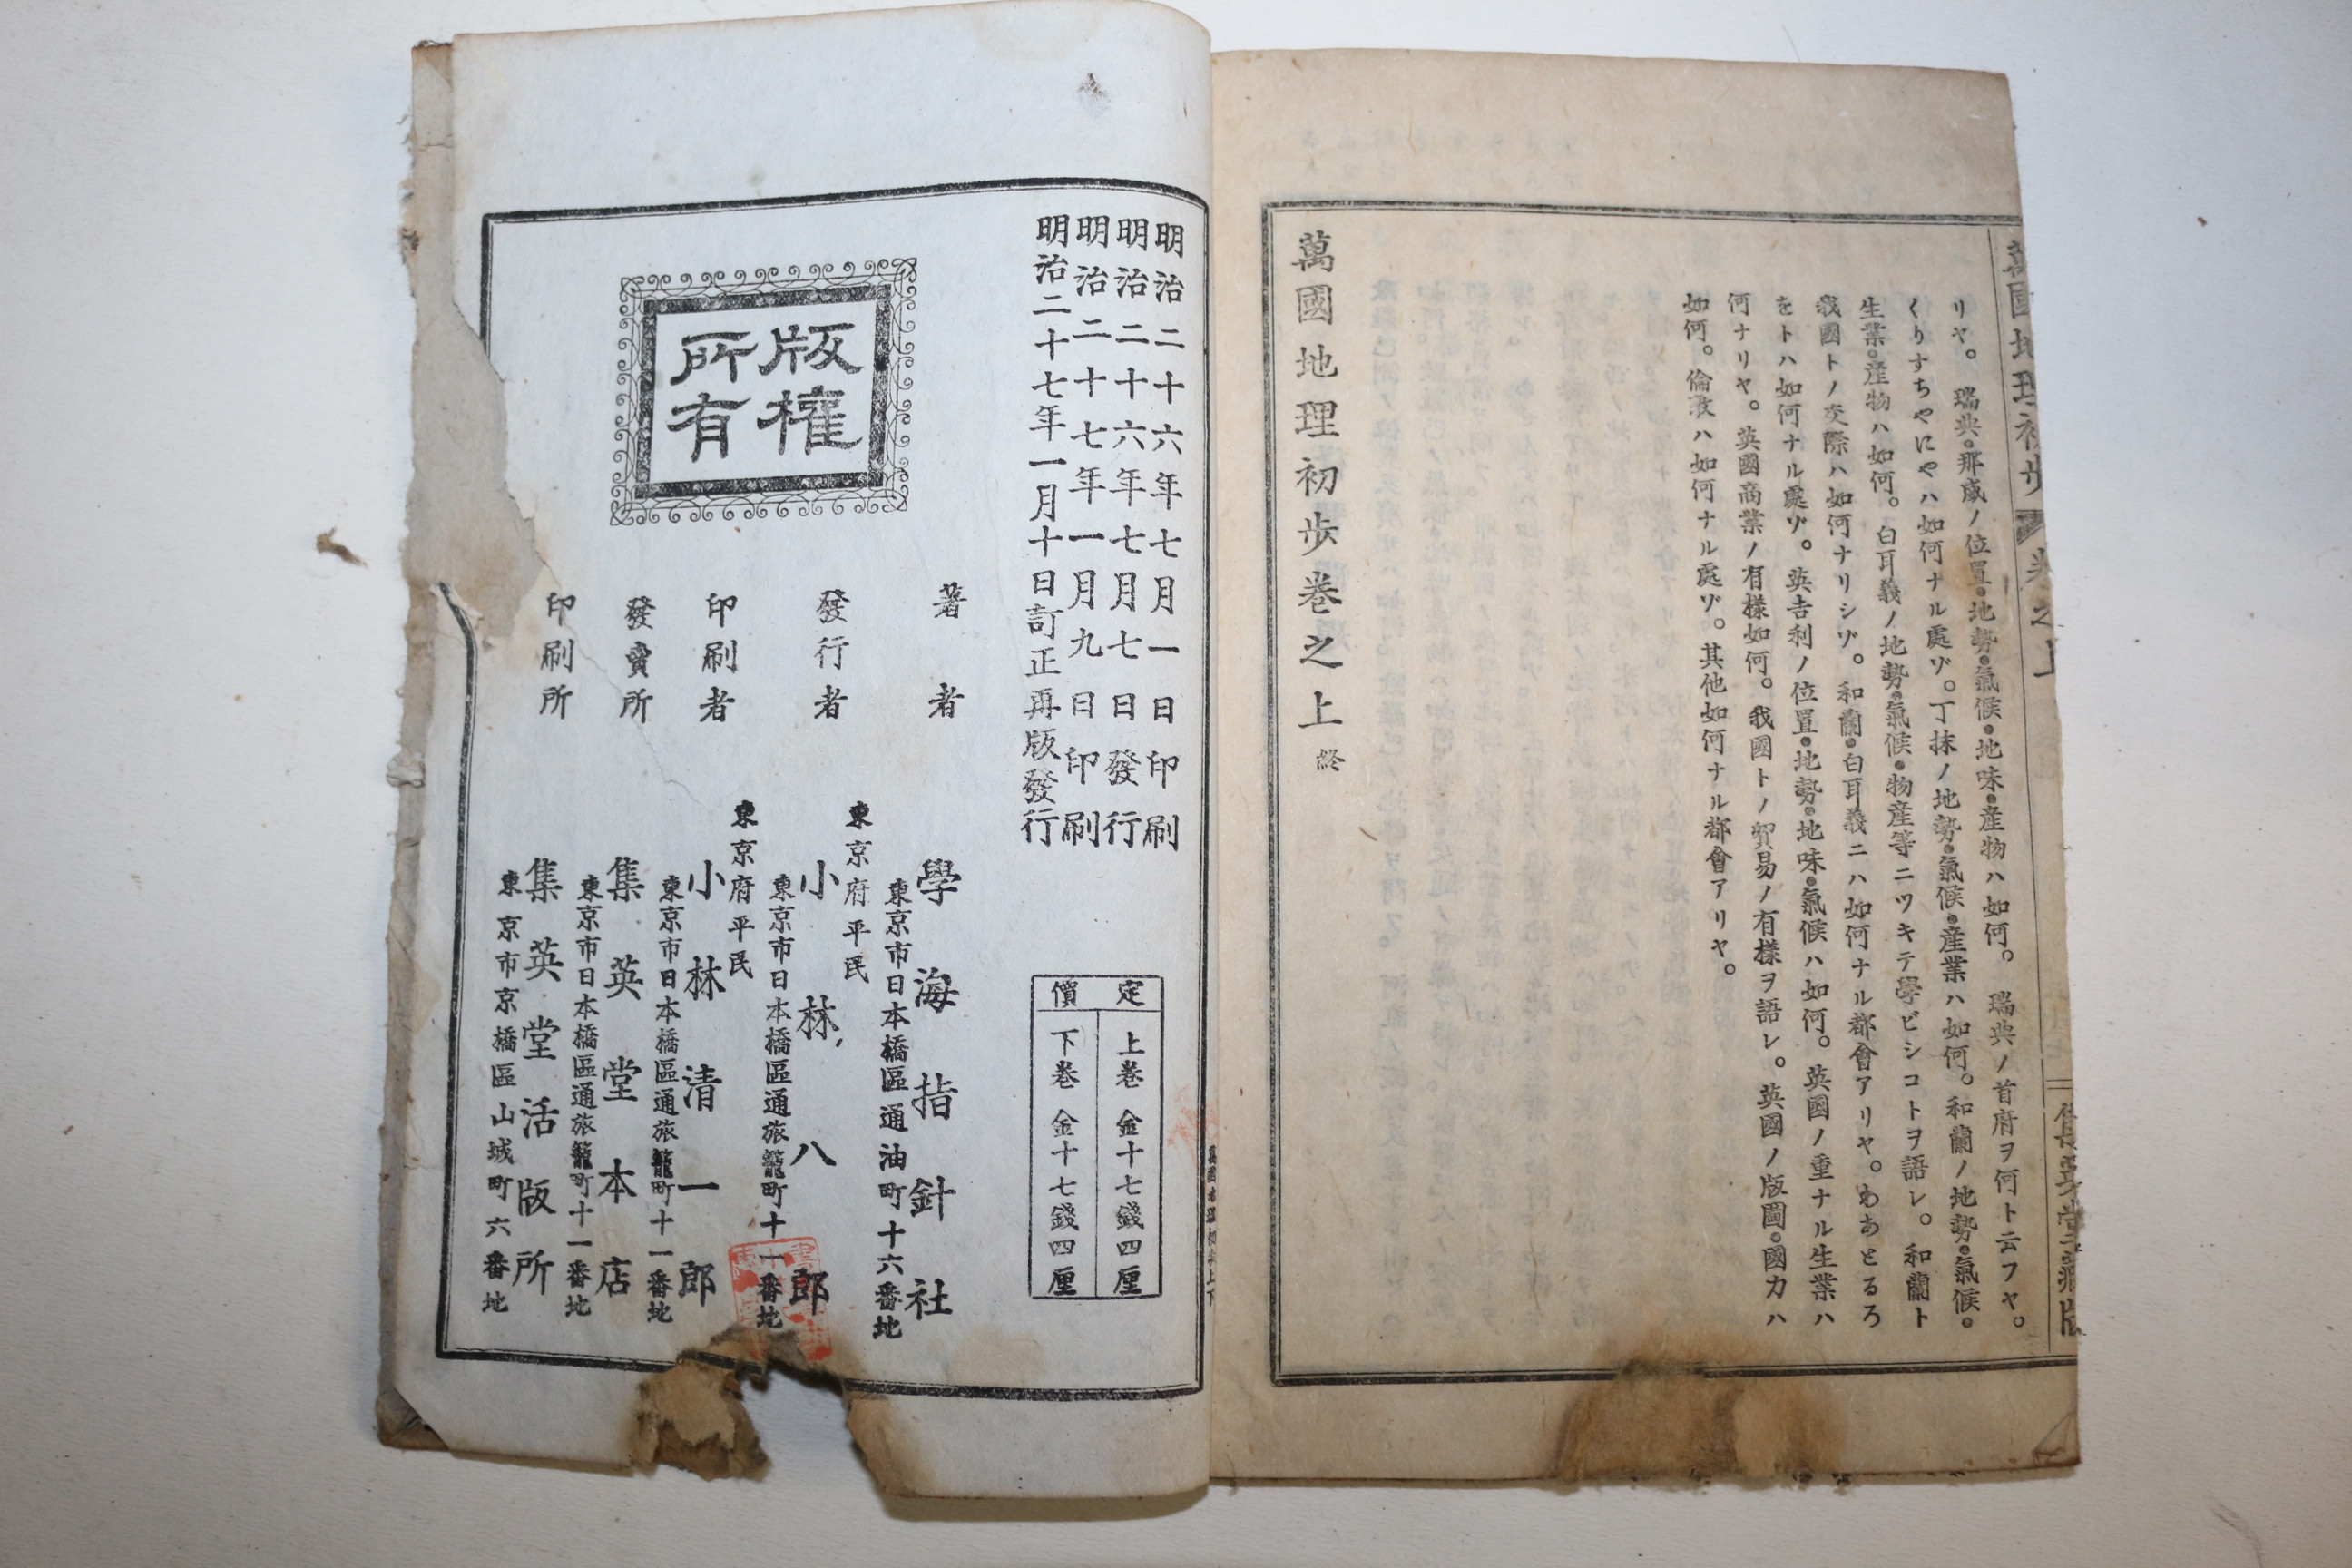 萬國地理初歩 卷之上
集英堂藏版
リヤ。瑞典・那威ノ位置・地勢・氣候・地味・産物ハ如何。瑞典ノ首府ヲ何ト云フヤ。
くりすちやにやハ如何ナル處ゾ。丁抹ノ地勢・氣候・産業ハ如何。和蘭ノ地勢・氣候・
生業・産物ハ如何。白耳義ノ地勢・氣候・物産等ニツキテ學ビシコトヲ語レ。和蘭ト
我國トノ交際ハ如何ナリシゾ。和蘭・白耳義ニハ如何ナル都會アリヤ。あゐとるろ
をトハ如何ナル處ゾ。英吉利ノ位置・地勢・地味・氣候ハ如何。英國ノ重ナル生業ハ
何ナリヤ。英國商業ノ有樣如何。我國トノ貿易ノ有樣ヲ語レ。英國ノ版圖・國力ハ
如何。倫敦ハ如何ナル處ゾ。其他如何ナル都會アリヤ。
萬國地理初歩卷之上 終
明治二十六年七月一日印刷
明治二十六年七月七日發行
明治二十七年一月九日印刷
明治二十七年一月十日訂正再版發行
定價
上卷 金十七錢四厘
下卷 金十七錢四厘
版權所有
著者 學海指針社
東京市日本橋區通油町十六番地
發行者
東京府平民
小林八郎
東京市日本橋區通旅籠町十一番地
印刷者
東京府平民
小林清一郎
東京市日本橋區通旅籠町十一番地
發賣所 集英堂本店
東京市日本橋區通旅籠町十一番地
印刷所 集英堂活版所
東京市京橋區山城町六番地